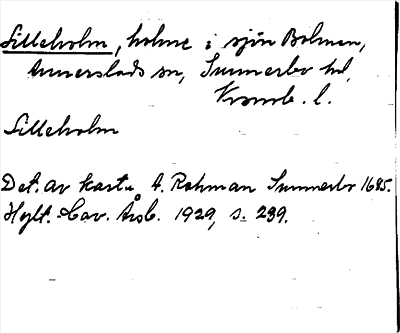 Lilleholm, holme i sjön Bolmen,
Annerstads sn, Sunnerbo hd,
Kronob. l.
Lilleholm
Det. av karta A. Rahman Sunnerbo 1685.
Hylt.-Cav. Årsb. 1929, s. 239.